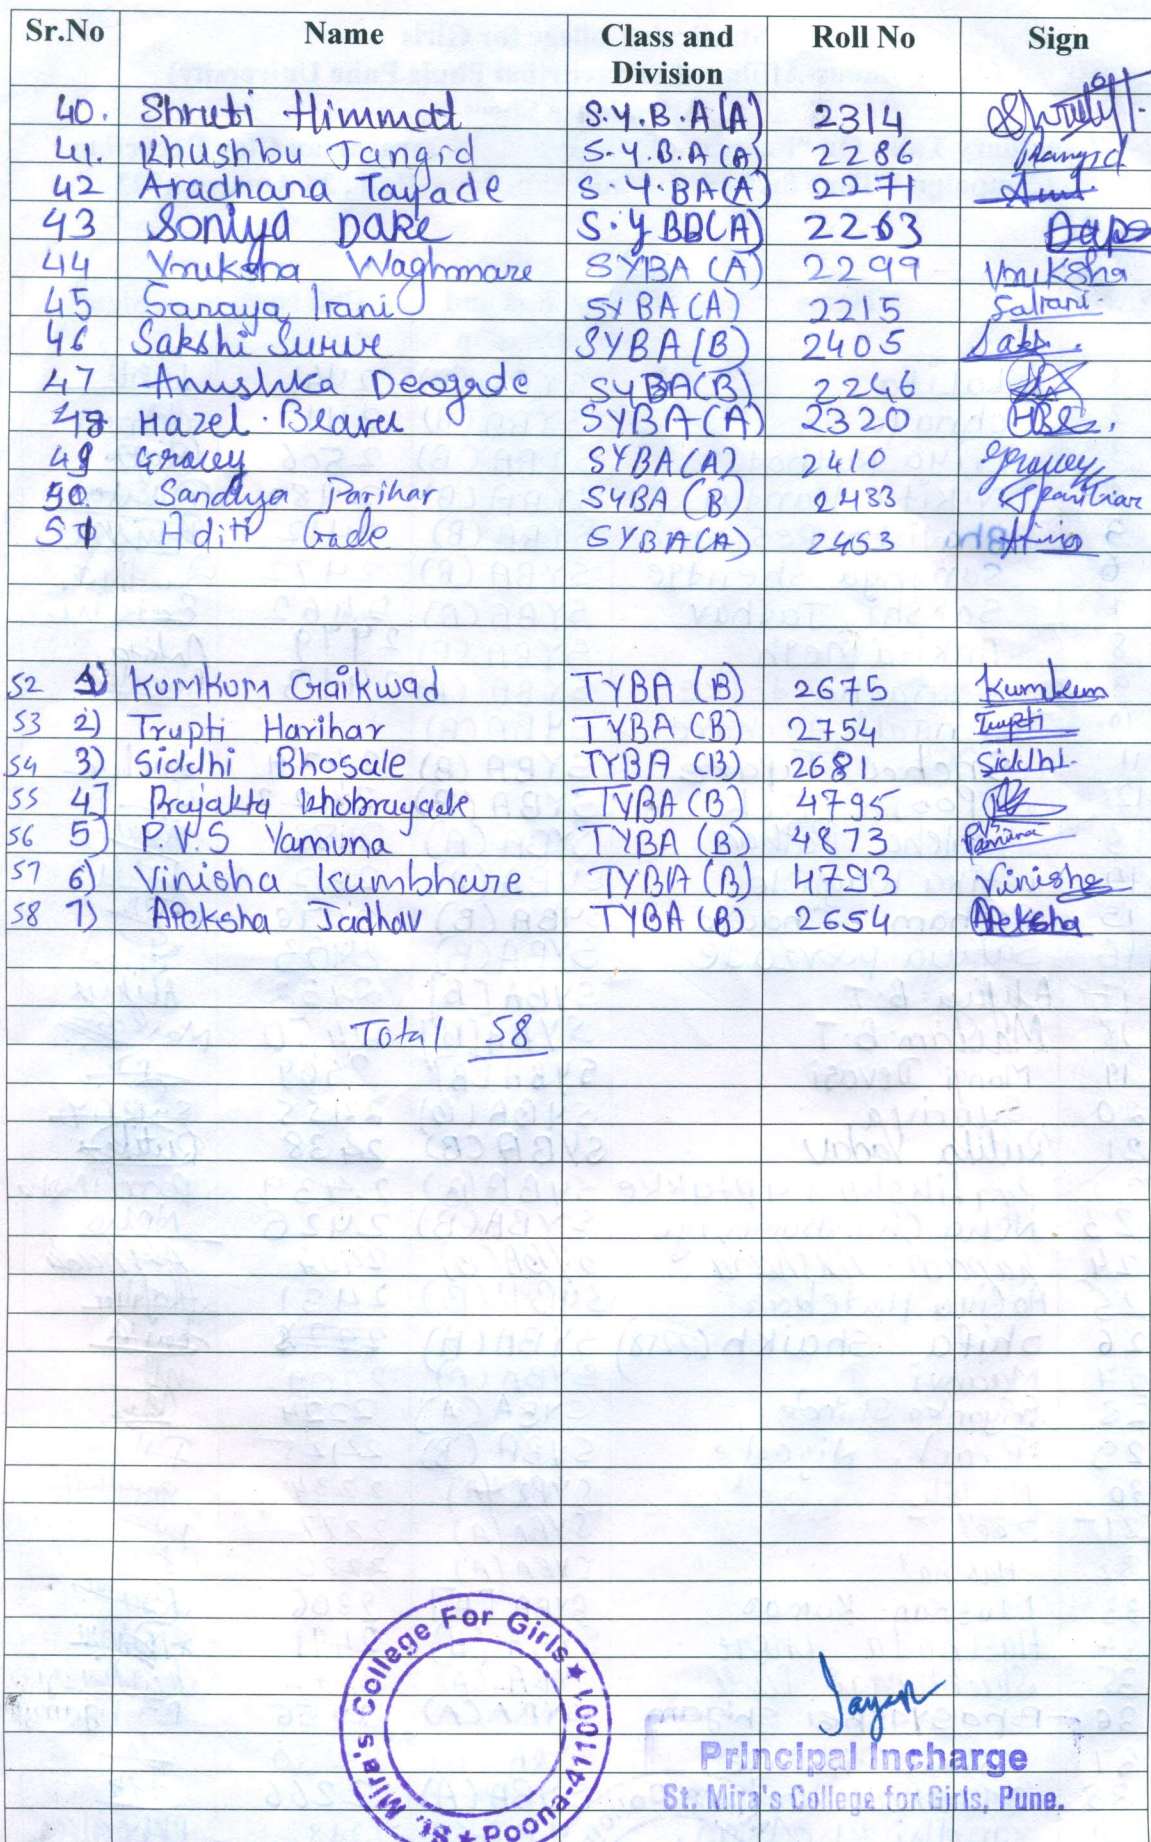 Sr.No Name Class and Division Roll No Sign
40. Shruti Himmat S.Y.B.A(A) 2314
41. Khushbu Jangid S.Y.B.A(A) 2286 Jangid
42 Aradhana Tayade S.Y.BA(A) 2271
43 Soniya Dake S.Y BA(A) 2263
44 Vruksha Waghmare SYBA (A) 2299 Vruksha
45 Sanaya Irani SYBA(A) 2215 SaIrani
46 Sakshi Surve SYBA(B) 2405
47 Anushka Deogade SYBA(B) 2246
48 Hazel SYBA(A) 2320
49 Gracey SYBA(A) 2410 Gracey
50. Sandhya Parihar SYBA (B) 2433 SParihar
51 Aditi Gade SYBA(A) 2453
52 1) Kumkum Gaikwad TYBA (B) 2675 Kumkum
53 2) Trupti Harihar TYBA (B) 2754 Trupti
54 3) Siddhi Bhosale TYBA (B) 2681 Siddhi
55 4] Prajakta Khobragade TYBA (B) 4795
56 5) P.V.S Yamuna TYBA (B) 4873 PVS Yamuna
57 6) Vinisha Kumbhare TYBA (B) 4793 Vinisha
58 7) Apeksha Jadhav TYBA (B) 2654 Apeksha
Total 58
St. Mira's College For Girls ★ Poona-411001 ★
Principal Incharge
St. Mira's College for Girls, Pune.